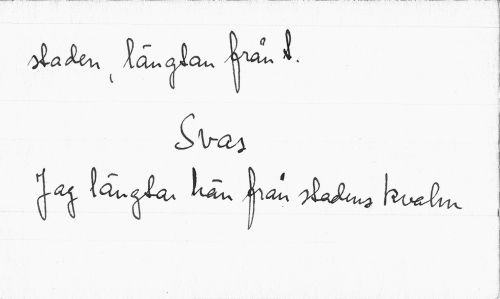 staden, längtan från t.
Svas
Jag längtar hän från stadens kvalm